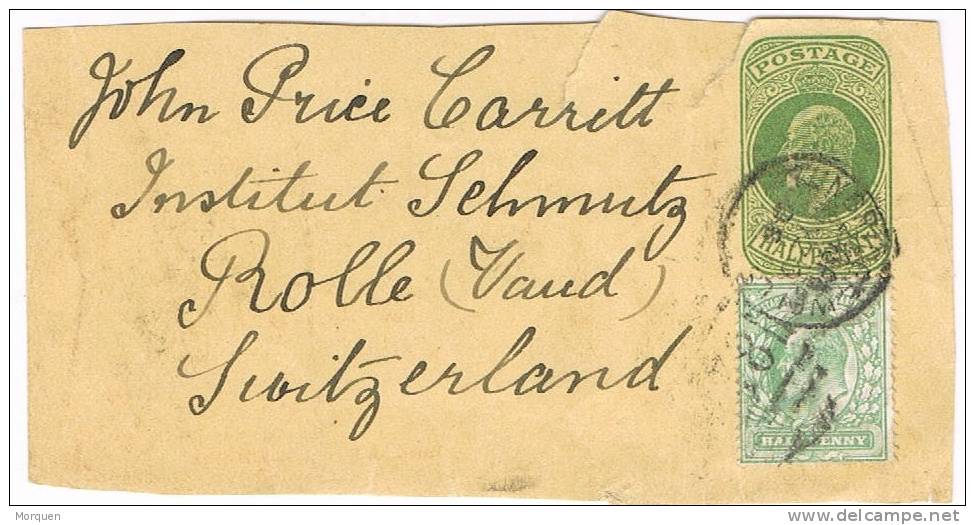 John Price Carritt
Institut Schmutz
Rolle (Vaud)
Switzerland
POSTAGE
HALFPENNY
HALFPENNY
Morquen
www.delcampe.net